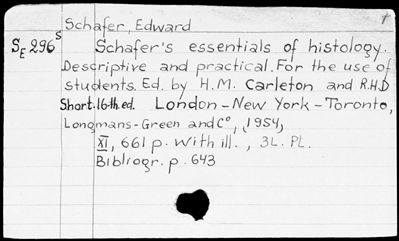 Schafer, Edward
SE 296 s Schafer's essentials of histology.
Descriptive and practical. For the use of
students. Ed. by H.M. Carleton and R.H.D
Short. 16th.ed. London-New York-Toronto,
Longmans-Green and C°, 1954,
XI, 661 p. With ill., 3L. PL.
Bibliogr. p. 643